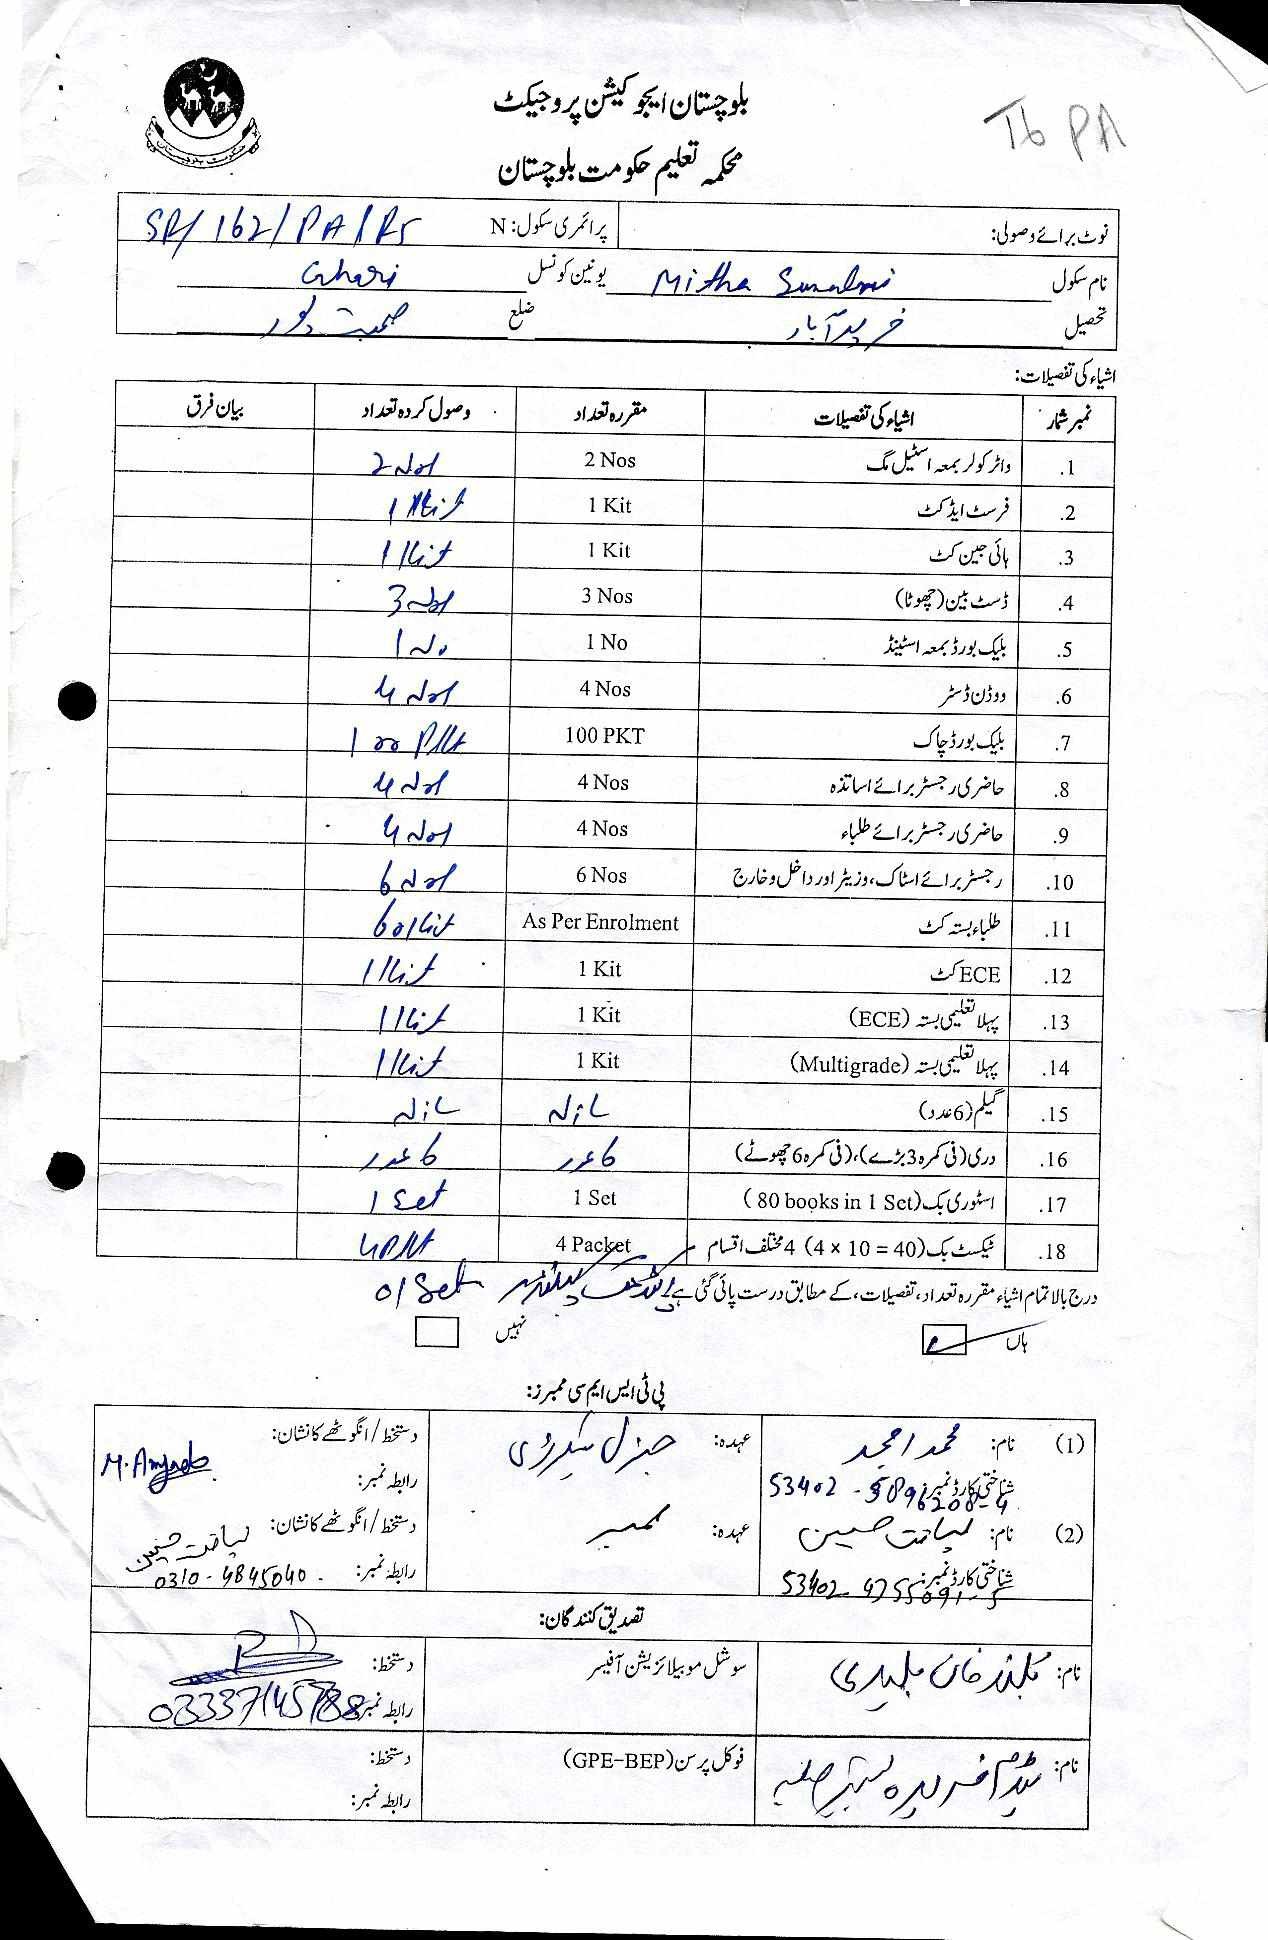 بلوچستان ایجوکیشن پروجیکٹ
T6 PA
محکمہ تعلیم حکومت بلوچستان
نوٹ برائے وصولی: پرائمری سکول: N SR/162/PA/RS
نام سکول Mitha یونین کونسل Ghari
تحصیل فریدآباد ضلع صحبت پور
اشیاء کی تفصیلات:
نمبر شمار اشیاء کی تفصیلات مقررہ تعداد وصول کردہ تعداد بیان فرق
1. واٹر کولر بمعہ اسٹیل مگ 2 Nos 2 Nos
2. فرسٹ ایڈ کٹ 1 Kit 1 Kit
3. ہائی جین کٹ 1 Kit 1 Kit
4. ڈسٹ بین (چھوٹا) 3 Nos 3 Nos
5. بلیک بورڈ بمعہ اسٹینڈ 1 No 1 No
6. ووڈن ڈسٹر 4 Nos 4 Nos
7. بلیک بورڈ چاک 100 PKT 100 PKt
8. حاضری رجسٹر برائے اساتذہ 4 Nos 4 Nos
9. حاضری رجسٹر برائے طلباء 4 Nos 4 Nos
10. رجسٹر برائے اسٹاک، وزیٹر اور داخل و خارج 6 Nos 6 Nos
11. طلباء بستہ کٹ As Per Enrolment 60 Kit
12. ECE کٹ 1 Kit 1 Kit
13. پہلا تعلیمی بستہ (ECE) 1 Kit 1 Kit
14. پہلا تعلیمی بستہ (Multigrade) 1 Kit 1 Kit
15. گیلم (6 عدد)
16. دری (فی کمرہ 3 بڑے)، (فی کمرہ 6 چھوٹے) 6 عدد 6 عدد
17. اسٹوری بک (80 books in 1 Set) 1 Set 1 Set
18. ٹیکسٹ بک (4 x 10 = 40) 4 مختلف اقسام 4 Packet 4 PKt
درج بالا تمام اشیاء مقررہ تعداد، تفصیلات، کے مطابق درست پائی گئی ہے 01 Set
ہاں نہیں
پی ٹی ایس ایم سی ممبرز:
(1) نام: محمد امجد عہدہ: جنرل سیکرٹری دستخط/انگوٹھے کا نشان: M. Amjad
شناختی کارڈ نمبر: 53402-5896208-9 رابطہ نمبر:
(2) نام: لیاقت حسین عہدہ: ممبر دستخط/انگوٹھے کا نشان: لیاقت حسین
شناختی کارڈ نمبر: 53402-4755091-5 رابطہ نمبر: 0310-4845040
تصدیق کنندگان:
نام: خان سوشل موبیلائزیشن آفیسر دستخط:
رابطہ نمبر: 03337145788
نام: میڈم فریدہ فوکل پرسن (GPE-BEP) دستخط:
رابطہ نمبر: